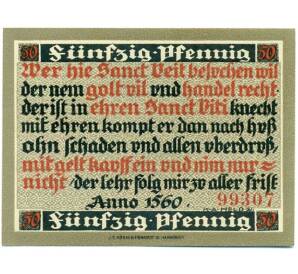 50 Fünfzig Pfennig 50
Wer hie Sanct Veit besvchen wil
der nem golt vil vnd handel recht
der ist in ehren Sanct Viti knecht
mit ehren kompt er dan nach hvß
ohn schaden vnd allen vberdrvß,
mit gelt kavff ein vnd nim nur
nicht der lehr folg mir zv aller frist
Anno 1560. 99307
50 Fünfzig Pfennig 50